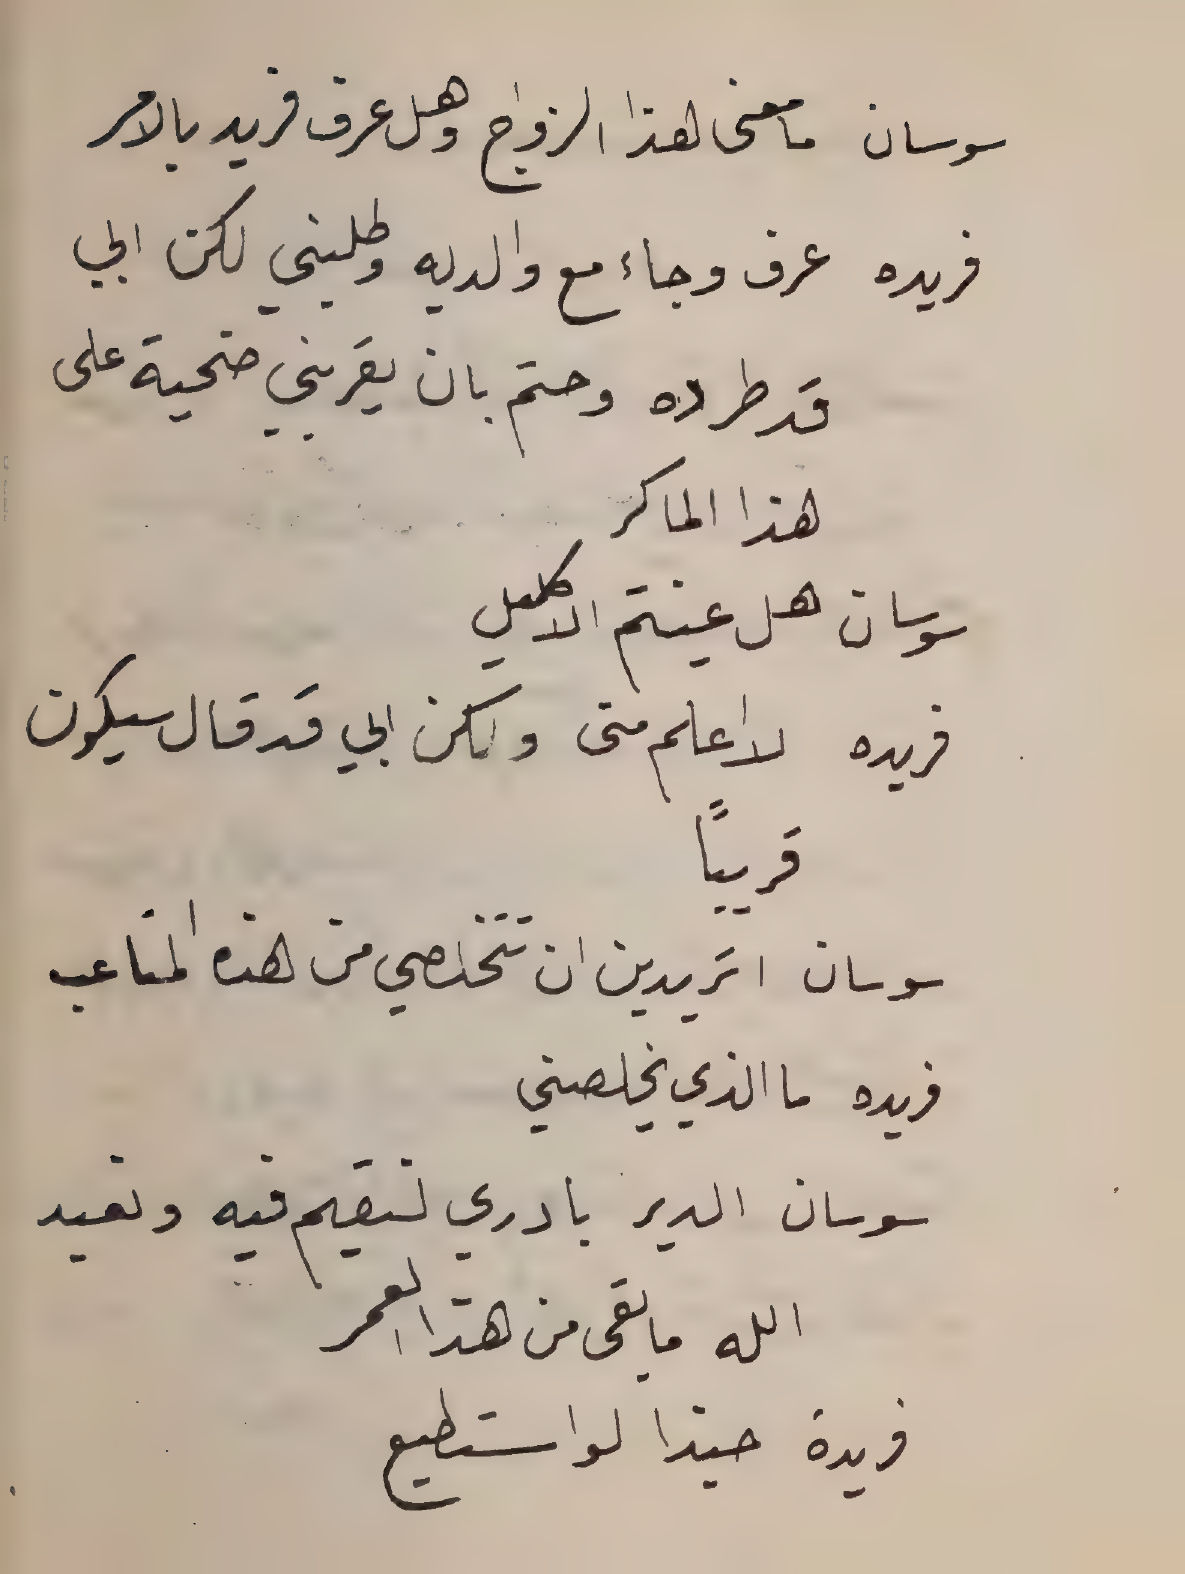 سوسان ما معنى هذا الزواج وهل عرف فريد بالامر
فريده عرف وجاء مع والديه وطلبني لكن ابي
قد طرده وحتم بان يقربني ضحية على
هذا الماكر
سوسان هل عينتم الاكليل
فريده لا اعلم متى ولكن ابي قد قال سيكون
قريباً
سوسان اتريدين ان تتخلصي من هذه المتاعب
فريده ما الذي يخلصني
سوسان الدير بادري لنقيم فيه ونعبد
الله ما بقى من هذا العمر
فريدة حبذا لو استطيع